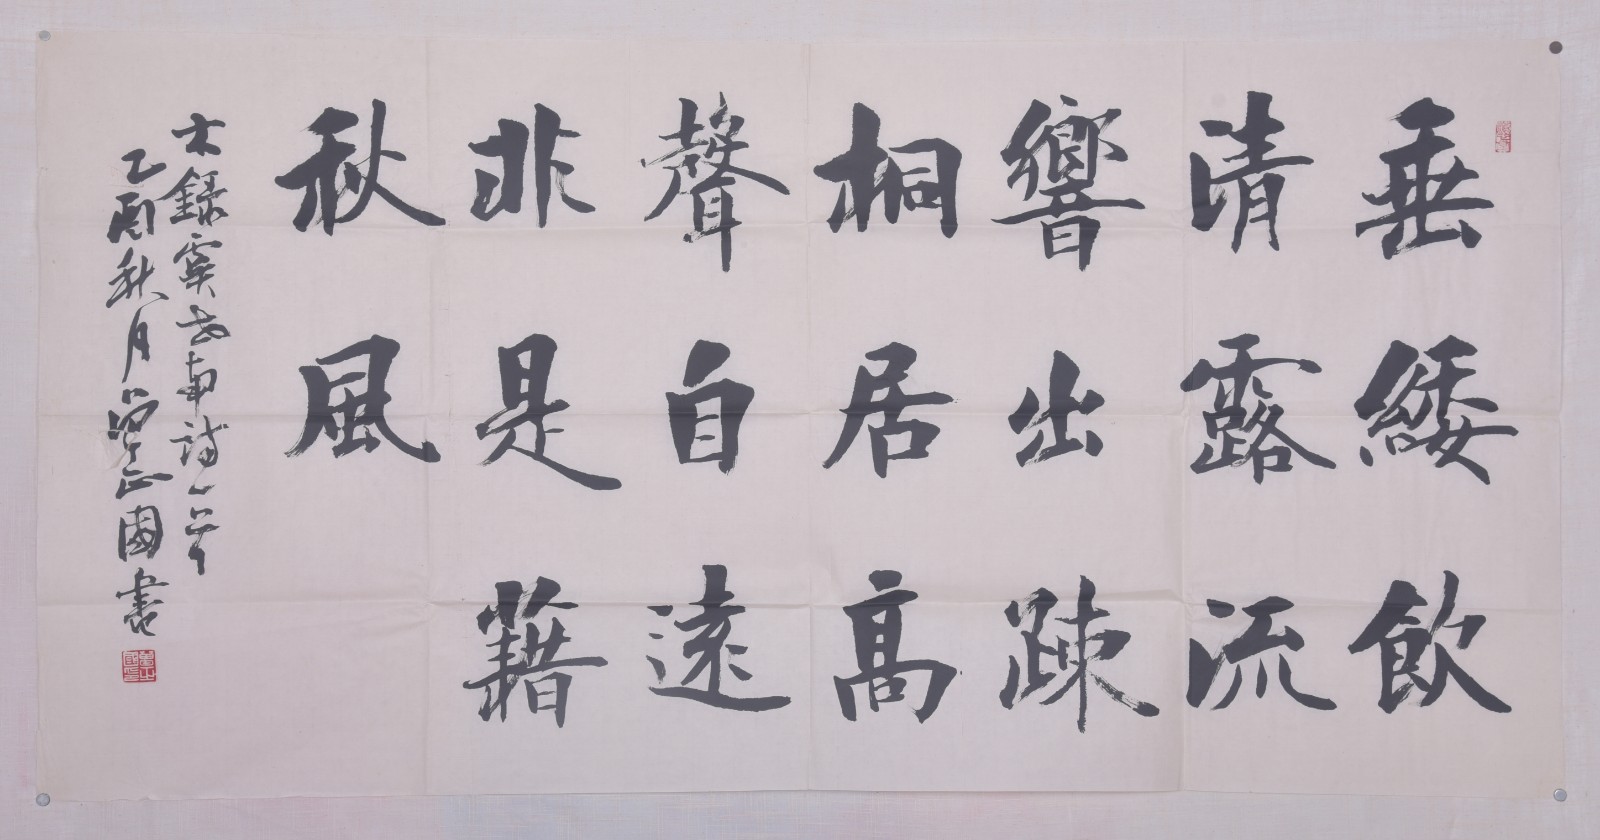 垂緌飲
清露流
響出疎
桐居高
聲自遠
非是藉
秋風
古錄虞世南詩一首
乙酉秋月 正國書